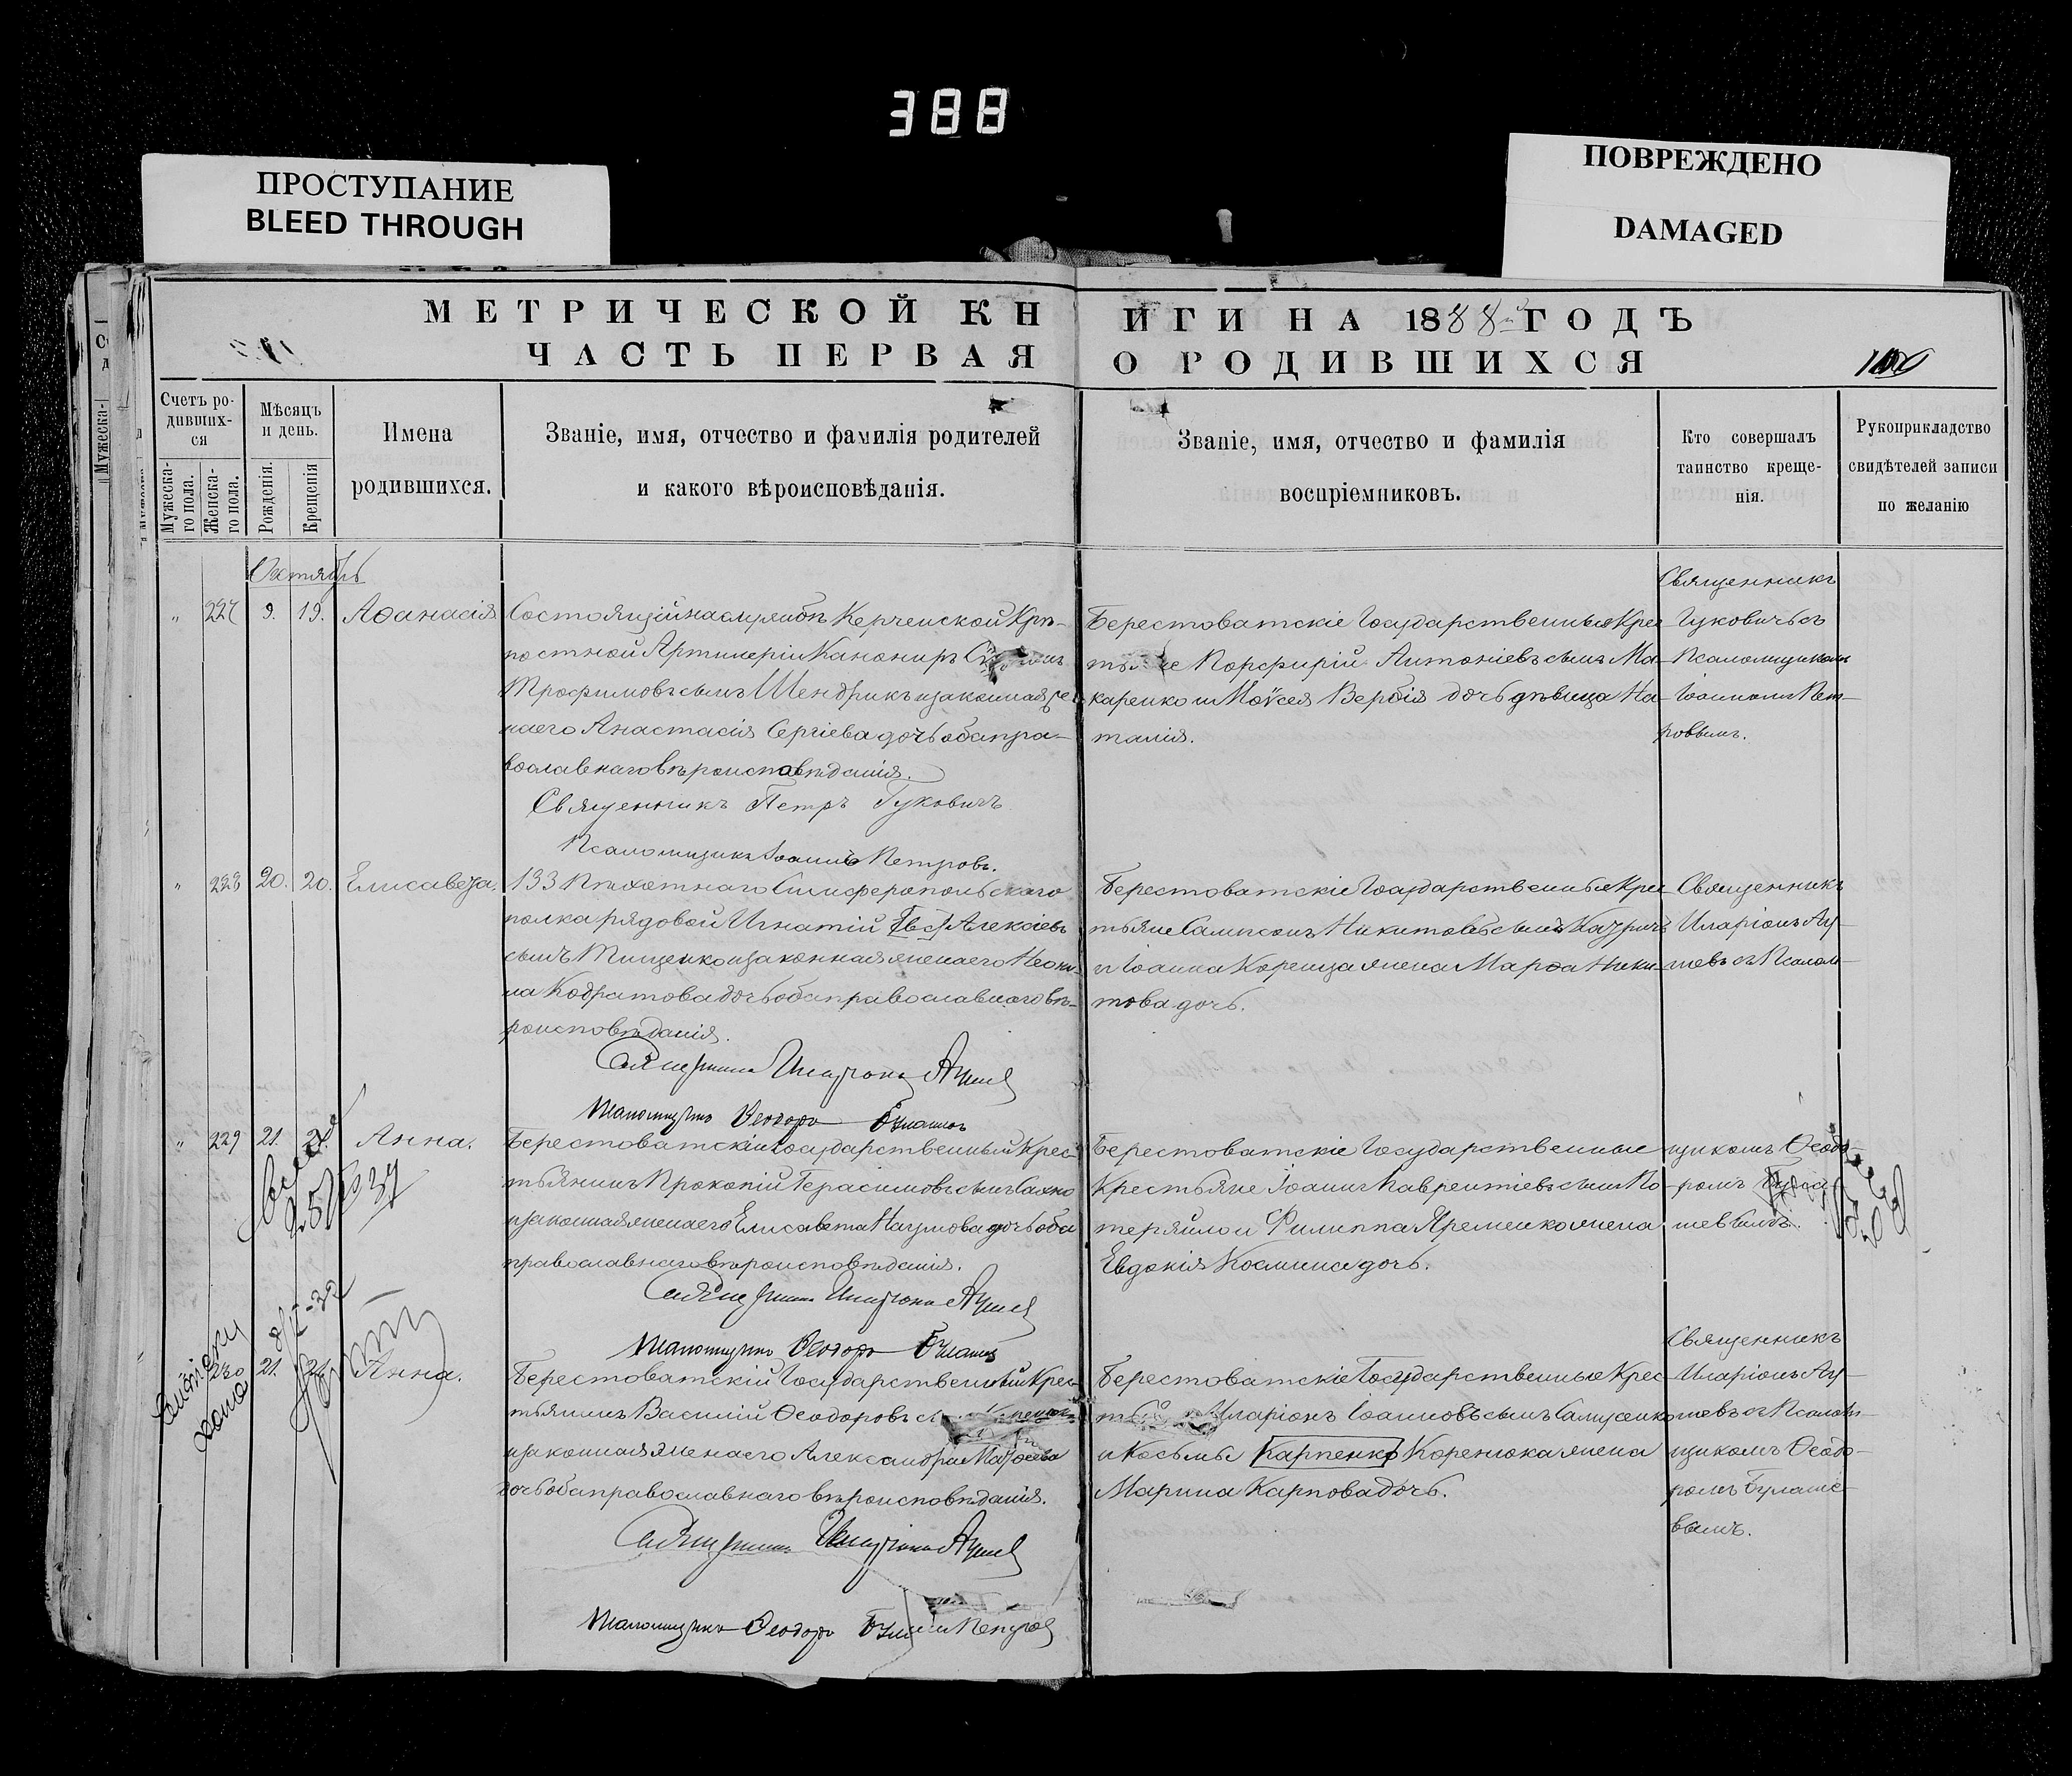 388
ПРОСТУПАНИЕ
BLEED THROUGH
ПОВРЕЖДЕНО
DAMAGED
МЕТРИЧЕСКОЙ КНИГИ НА 1888 ГОДЪ
ЧАСТЬ ПЕРВАЯ О РОДИВШИХСЯ
Счетъ ро-
дивших-
ся
Мужеска-
го пола.
Женска-
го пола.
Мѣсяцъ
и день.
Рожденія.
Крещенія
Имена
родившихся.
Званіе, имя, отчество и фамилія родителей
и какого вѣроисповѣданія.
Званіе, имя, отчество и фамилія
воспріемниковъ.
Кто совершалъ
таинство креще-
нія.
Рукоприкладство
свидѣтелей записи
по желанію
Октябрь
227 9. 19. Аѳанасія
Состоящій на службѣ Керченской Крѣ-
постной Артилеріи Канониръ
Трофимовъ сынъ Шендрикъ и законная же
на его Анастасія Сергіева дочь оба пра-
вославнаго вѣроисповѣданія.
Священникъ Петръ Гуковичъ
Псаломщикъ Іоаннъ Петровъ.
Берестоватскіе Государственные Крес
Порфирій Антоніевъ сынъ Ма-
каренко и Моѵсея Вербія дочь дѣвица На-
талія.
Священникъ
Гуковичъ съ
Псаломщикомъ
Іоанномъ Пет-
ровымъ.
228 20. 20. Елисавета.
133 Пѣхотнаго Симферопольскаго
полка рядовой Игнатій Алексіевъ
сынъ Тищенко и законная жена его Неони-
ла Кодратова дочь оба православнаго вѣ-
роисповѣданія.
Священникъ Иларіонъ
Псаломщикъ Ѳеодоръ
Берестоватскіе Государственные Крес
тьяне Сампсонъ Никитовъ сынъ
и Іоанна Коренца жена Марѳа Ники-
това дочь.
Священникъ
Иларіонъ
съ Псалом-
229 21. Анна.
Берестоватскій Государственный Крес-
тьянинъ Прокопій Герасимовъ сынъ Сахно
и законная жена его Елисавета Наумова дочь оба
православнаго вѣроисповѣданія.
Священникъ Иларіонъ
Псаломщикъ Ѳеодоръ
Берестоватскіе Государственные
Крестьяне Іоаннъ Лаврентіевъ сынъ По-
теряйло и Филиппа Яременко жена
Евдокія Космина дочь.
щикомъ Ѳеодо-
ромъ
230 21. Анна.
Берестоватскій Государственный Крес-
тьянинъ Василій Ѳеодоровъ
и законная жена его Александра
дочь оба православнаго вѣроисповѣданія.
Священникъ Иларіонъ
Псаломщикъ Ѳеодоръ
Берестоватскіе Государственные Крес
Иларіонъ Іоанновъ сынъ Самусенко
и Косьмы Карпенко Коренюка жена
Марина Карпова дочь.
Священникъ
Иларіонъ
съ Псаломъ-
щикомъ Ѳеодо-
ромъ Булаше-
вымъ.